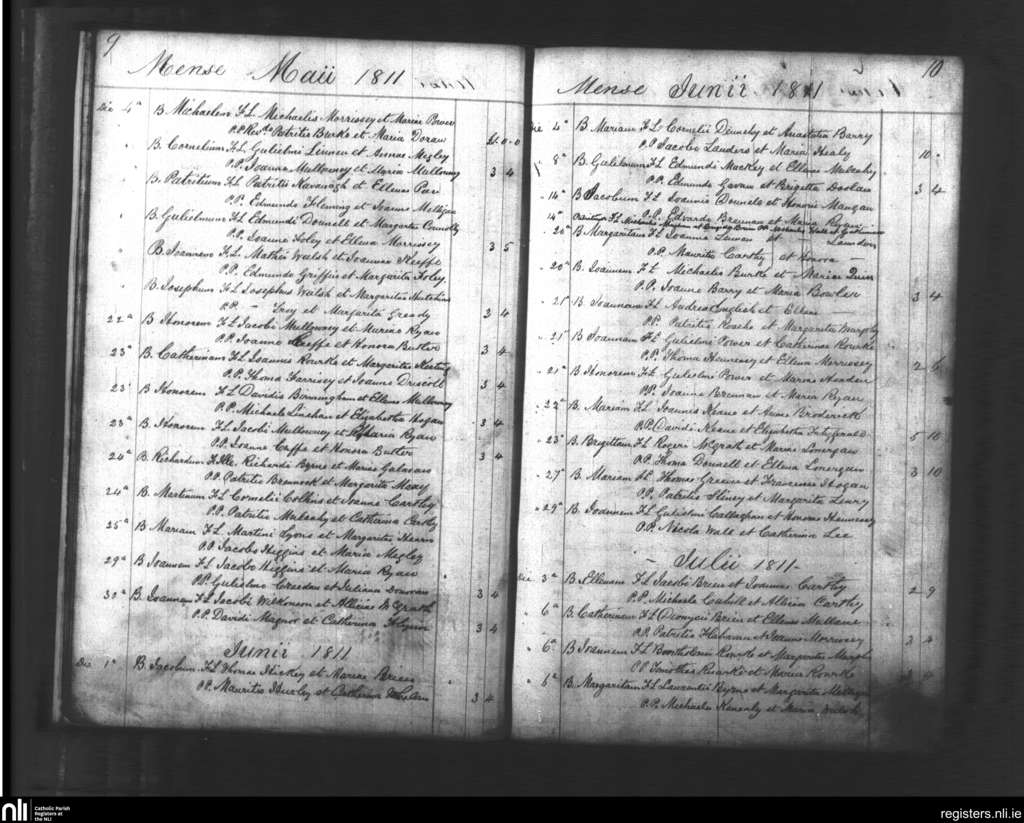 9
Mense Maii 1811
Die 4ª B Michaelem F.L. Michaelis Morrissey et Mariae Power
P.P. Revdo Patritio Burke et Maria Doran £1.0-0
B. Cornelium F.L. Gulielmi Linnen et Annae Megley
P.P. Joanne Mullowney et Maria Mullowny 3 4
B. Patritium F.L. Patritii Kavanagh et Ellenae
P.P. Edmundo Fleming et Joanna Milligan
B. Gulielmum F.L. Edmundi Donnell et Margarita Connolly
P.P. Joanne Foley et Ellena Morrissey 3 5
B. Joannem F.L. Mathei Walsh et Joannae Keeffe
P.P. Edmundo Griffin et Margarita Foley
B. Josephum F.L. Josephus Walsh et Margaritae
P.P. Troy et Margarita Gready 3 4
22ª B Honoram F.L. Jacobi Mullowney et Mariae Ryan
P.P. Joanne Keeffe et Honora Butler 3 4
23ª B. Catherinam F.L. Joannis Rourke et Margarita Keating
P.P. Thoma Farrisey et Joanna Driscoll 3 4
23ª B Honoram F.L. Davidis Bermingham et Ellena Mullowny
P.P. Michaele Linehan et Elizabetha Hogan 3 4
23ª B Honoram F.L. Jacobi Mullowney et Maria Ryan
P.P. Joanne Ceffe et Honora Butler 3 4
24ª B. Richardum Richardi Byrne et Mariae
P.P. Patritio Brennock et Margarita Moxey
24ª B. Martinum F.L. Cornelii Collins et Joanna Carthy
P.P. Patritio Mulcahy et Catherina Carthy
25ª B Mariam F.L. Martini Lyons et Margarita Hearn
P.P. Jacobo Higgins et Maria Megley
29ª B Joannem F.L. Jacobo Higgins et Maria Ryan
P.P. Gulielmo Creedon et Juliana Donovan 3 4
30ª B. Joannem F.L. Jacobi Wilkinson et Alliciae McGrath
P.P. Davidi Magnor et Catherina 3 4
Junii 1811
Die 1ª B Jacobum F.L. Thomae Hickey et Mariae Brien
P.P. Mauritio Hurley et Catherina Whelan 3 4
10
Mense Junii 1811
Die 4ª B Mariam F.L. Cornelii Dunehy et Anastatia Barry
P.P. Jacobo Landers et Maria Healy 10
8ª B. Gulielmum F.L. Edmundi Mackey et Ellenae Mulcahy
P.P. Edmundo Gavan et Brigetta Doolan 3 4
14ª B Jacobum F.L. Joannis Donnelo et Honorae Mangan
P.P. Edvardo Brennan et Maria Ryan
14ª F.L. Michaelis
20ª B. Margaritam F.L. Joannis Lemon et — Lawdon
P.P. Mauritio Carthy et Honora —
20ª B. Joannem F.L. Michaelis Burke et Mariae Quin
P.P. Joanne Barry et Maria Bowler 3 4
21ª B Joannem F.L. Andreae English et Ellen —
P.P. Patritio Roache et Margarita Murphy
21ª B Joannam F.L. Gulielmi Power et Catherinae Rourke
P.P. Thoma Hennesey et Ellena Morrissey 2 6
21ª B Honoram F.L. Gulielmi Power et Maria Headen
P.P. Joanne Brennan et Maria Ryan
22ª B. Mariam F.L. Joannis Keane et Annae Broderick
P.P. David Keane et Elizabetha Fitzgerald 5 10
23ª B. Brigittam F.L. Rogeri McGrath et Mariae Lonergan
P.P. Thoma Donnell et Ellena Lonergan 3 10
27ª B. Mariam F.L. Thomae Greene et Franciscae Hogan
P.P. Patritio Henry et Margarita Leary
29ª B. Joannem F.L. Gulielmi Callaghan et Honorae Hennessey
P.P. Nicolo Wall et Catherina Lee
Julii 1811
Die 3ª B. Ellenam F.L. Jacobi Brien et Joannae Carthy
P.P. Michaele Cahill et Allicia Carthy 2 9
6ª B. Catherinam F.L. Dionysii Brien et Ellenae Mullane
P.P. Patritio Flahavan et Joanna Morrissey 3 4
6ª B Joannem F.L. Bartholomei Rourke et Margarita
P.P. Timotheo Rourke et Maria Rourke
6ª B. Margaritam F.L. Laurentii Byrne et Margarita
P.P. Michaele Kennealy et Maria Walsh
nli
Catholic Parish
Registers at
the NLI
registers.nli.ie